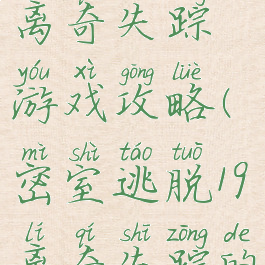 离奇失踪
yóu xì gōng lüè
游戏攻略(
mì shì táo tuō
密室逃脱19
lí qí shī zōng de
离奇失踪的